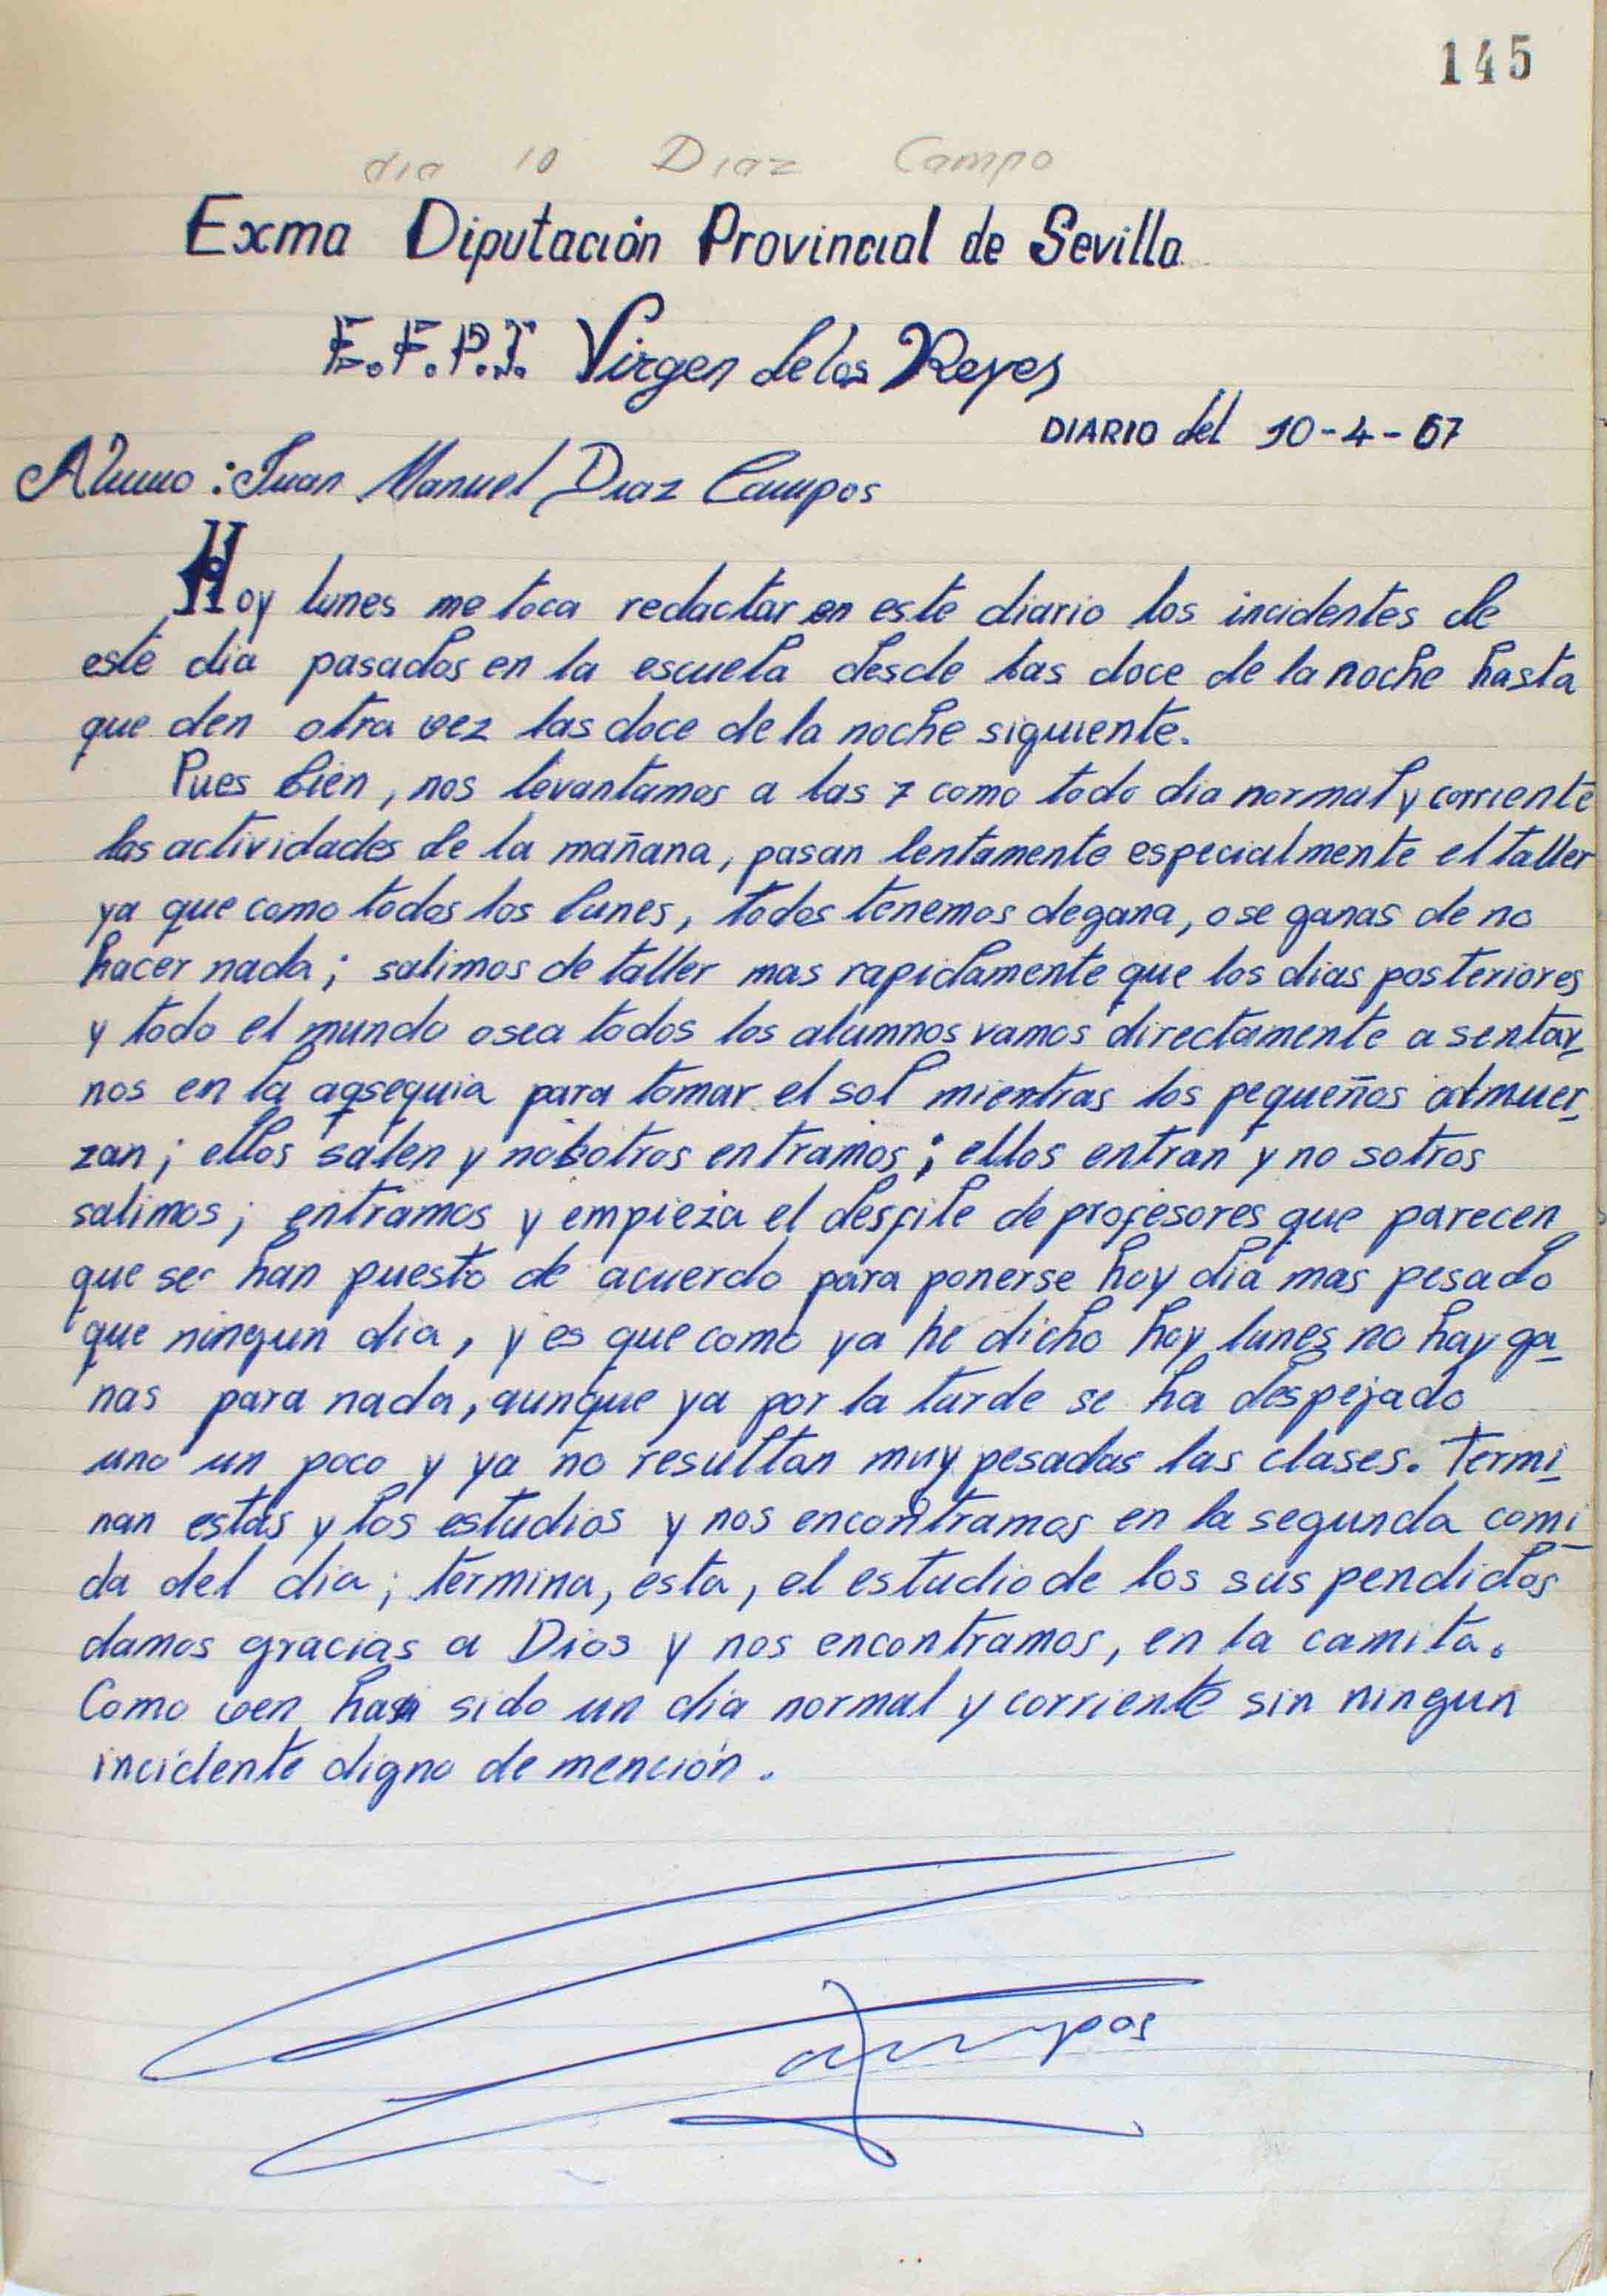 145
dia 10 Diaz Campo
Exma Diputación Provincial de Sevilla
E.F.P.I. Virgen de los Reyes
DIARIO del 10-4-67
Alumno: Juan Manuel Diaz Campos
Hoy lunes me toca redactar en este diario los incidentes de
este dia pasados en la escuela desde las doce de la noche hasta
que den otra vez las doce de la noche siguiente.
Pues bien, nos levantamos a las 7 como todo dia normal y corriente
las actividades de la mañana, pasan lentamente especialmente el taller
ya que como todos los lunes, todos tenemos degana, o se ganas de no
hacer nada; salimos de taller mas rapidamente que los dias posteriores
y todo el mundo osea todos los alumnos vamos directamente a sentar_
nos en la aqsequia para tomar el sol mientras los pequeños almuer_
zan; ellos salen y nosotros entramos; ellos entran y nosotros
salimos; entramos y empieza el desfile de profesores que parecen
que se han puesto de acuerdo para ponerse hoy dia mas pesado
que ningun dia, y es que como ya he dicho hoy lunes no hay ga_
nas para nada, aunque ya por la tarde se ha despejado
uno un poco y ya no resultan muy pesadas las clases. Termi_
nan estas y los estudios y nos encontramos en la segunda comi_
da del dia; termina, esta, el estudio de los suspendidos
damos gracias a Dios y nos encontramos, en la camita.
Como ven ha sido un dia normal y corriente sin ningun
incidente digno de mención.
Campos